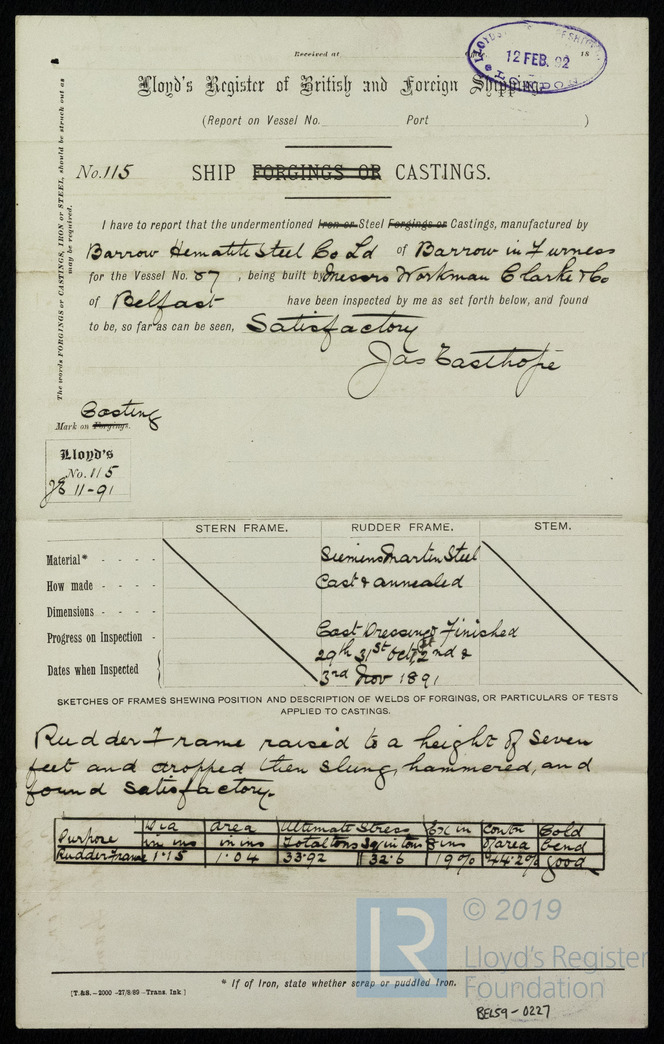 Received at 18
12 FEB. 92
Lloyd's Register of British and Foreign Shipping.
(Report on Vessel No. Port )
The words FORGINGS or CASTINGS, IRON or STEEL, should be struck out as
may be required.
No. 115 SHIP FORGINGS OR CASTINGS.
I have to report that the undermentioned Iron or Steel Forgings or Castings, manufactured by
Barrow Hematite Steel Co Ld of Barrow in Furness
for the Vessel No. 87, being built by Messrs Workman Clarke & Co
of Belfast have been inspected by me as set forth below, and found
to be, so far as can be seen, Satisfactory
Jas Easthope
Casting
Mark on Forgings.
Lloyd's
No. 115
JE 11-91
STERN FRAME. RUDDER FRAME. STEM.
Material* - - - - Siemens Martin Steel
How made - - - - Cast & annealed
Dimensions - - - -
Progress on Inspection - Cast Dressing & Finished
29th 31st Octr, 2nd &
Dates when Inspected 3rd Nov 1891
SKETCHES OF FRAMES SHEWING POSITION AND DESCRIPTION OF WELDS OF FORGINGS, OR PARTICULARS OF TESTS
APPLIED TO CASTINGS.
Rudder Frame raised to a height of seven
feet and dropped then slung, hammered, and
found satisfactory.
Purpose Dia in ins Area in ins Ultimate Stress Total tons Sq in tons Ex in 8 ins Contn of area Cold bend
Rudder Frame 1.15 1.04 33.92 32.6 19% 44.2% good
© 2019
LR Lloyd's Register
Foundation
* If of Iron, state whether scrap or puddled Iron.
[T.&S.-2000-27/8/89-Trans. Ink.]
BEL59-0227